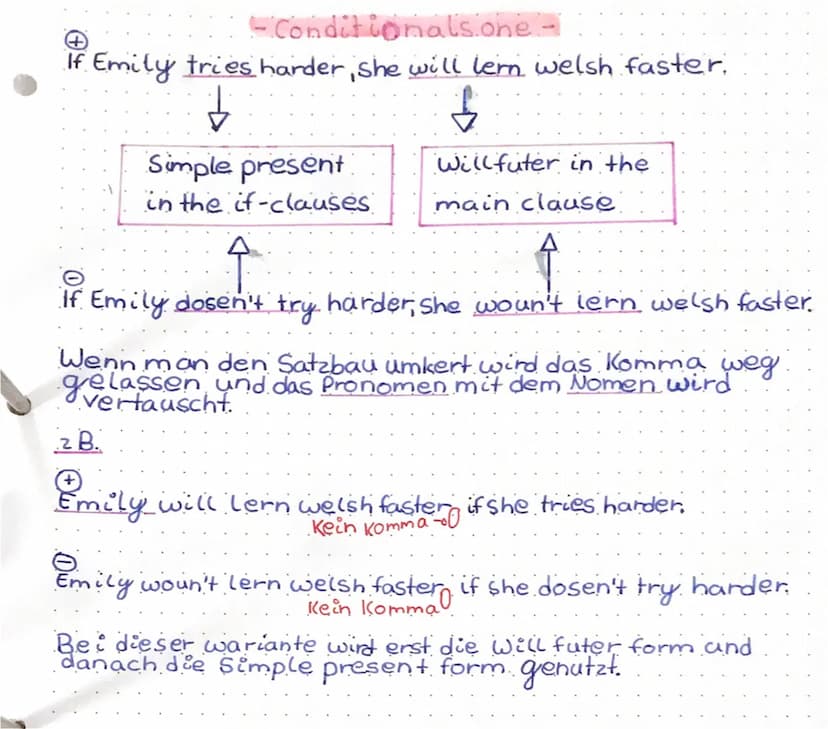 - Conditionals one -
+
If Emily tries harder, she will lern welsh faster.
Simple present
in the if-clauses
Will futer in the
main clause
-
If Emily dosen't try harder, she woun't lern welsh faster.
Wenn man den Satzbau umkert wird das Komma weg
gelassen und das Pronomen mit dem Nomen wird
vertauscht.
z B.
+
Emily will lern welsh faster if she tries harder.
Kein Komma
-
Emily woun't lern welsh faster if she dosen't try harder.
Kein Komma
Bei dieser wariante wird erst die Will futer form und
danach die Simple present form genutzt.